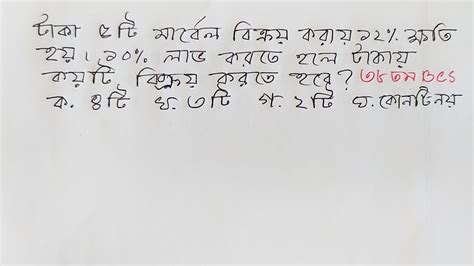 টাকা ৫টি মার্বেল বিক্রয় করায় ১২% ক্ষতি
হয়। ১০% লাভ করতে হলে টাকায়
কয়টি বিক্রয় করতে হবে? ৩৮তম BCS
ক. ৪টি খ. ৩টি গ. ২টি ঘ. কোনটিনয়